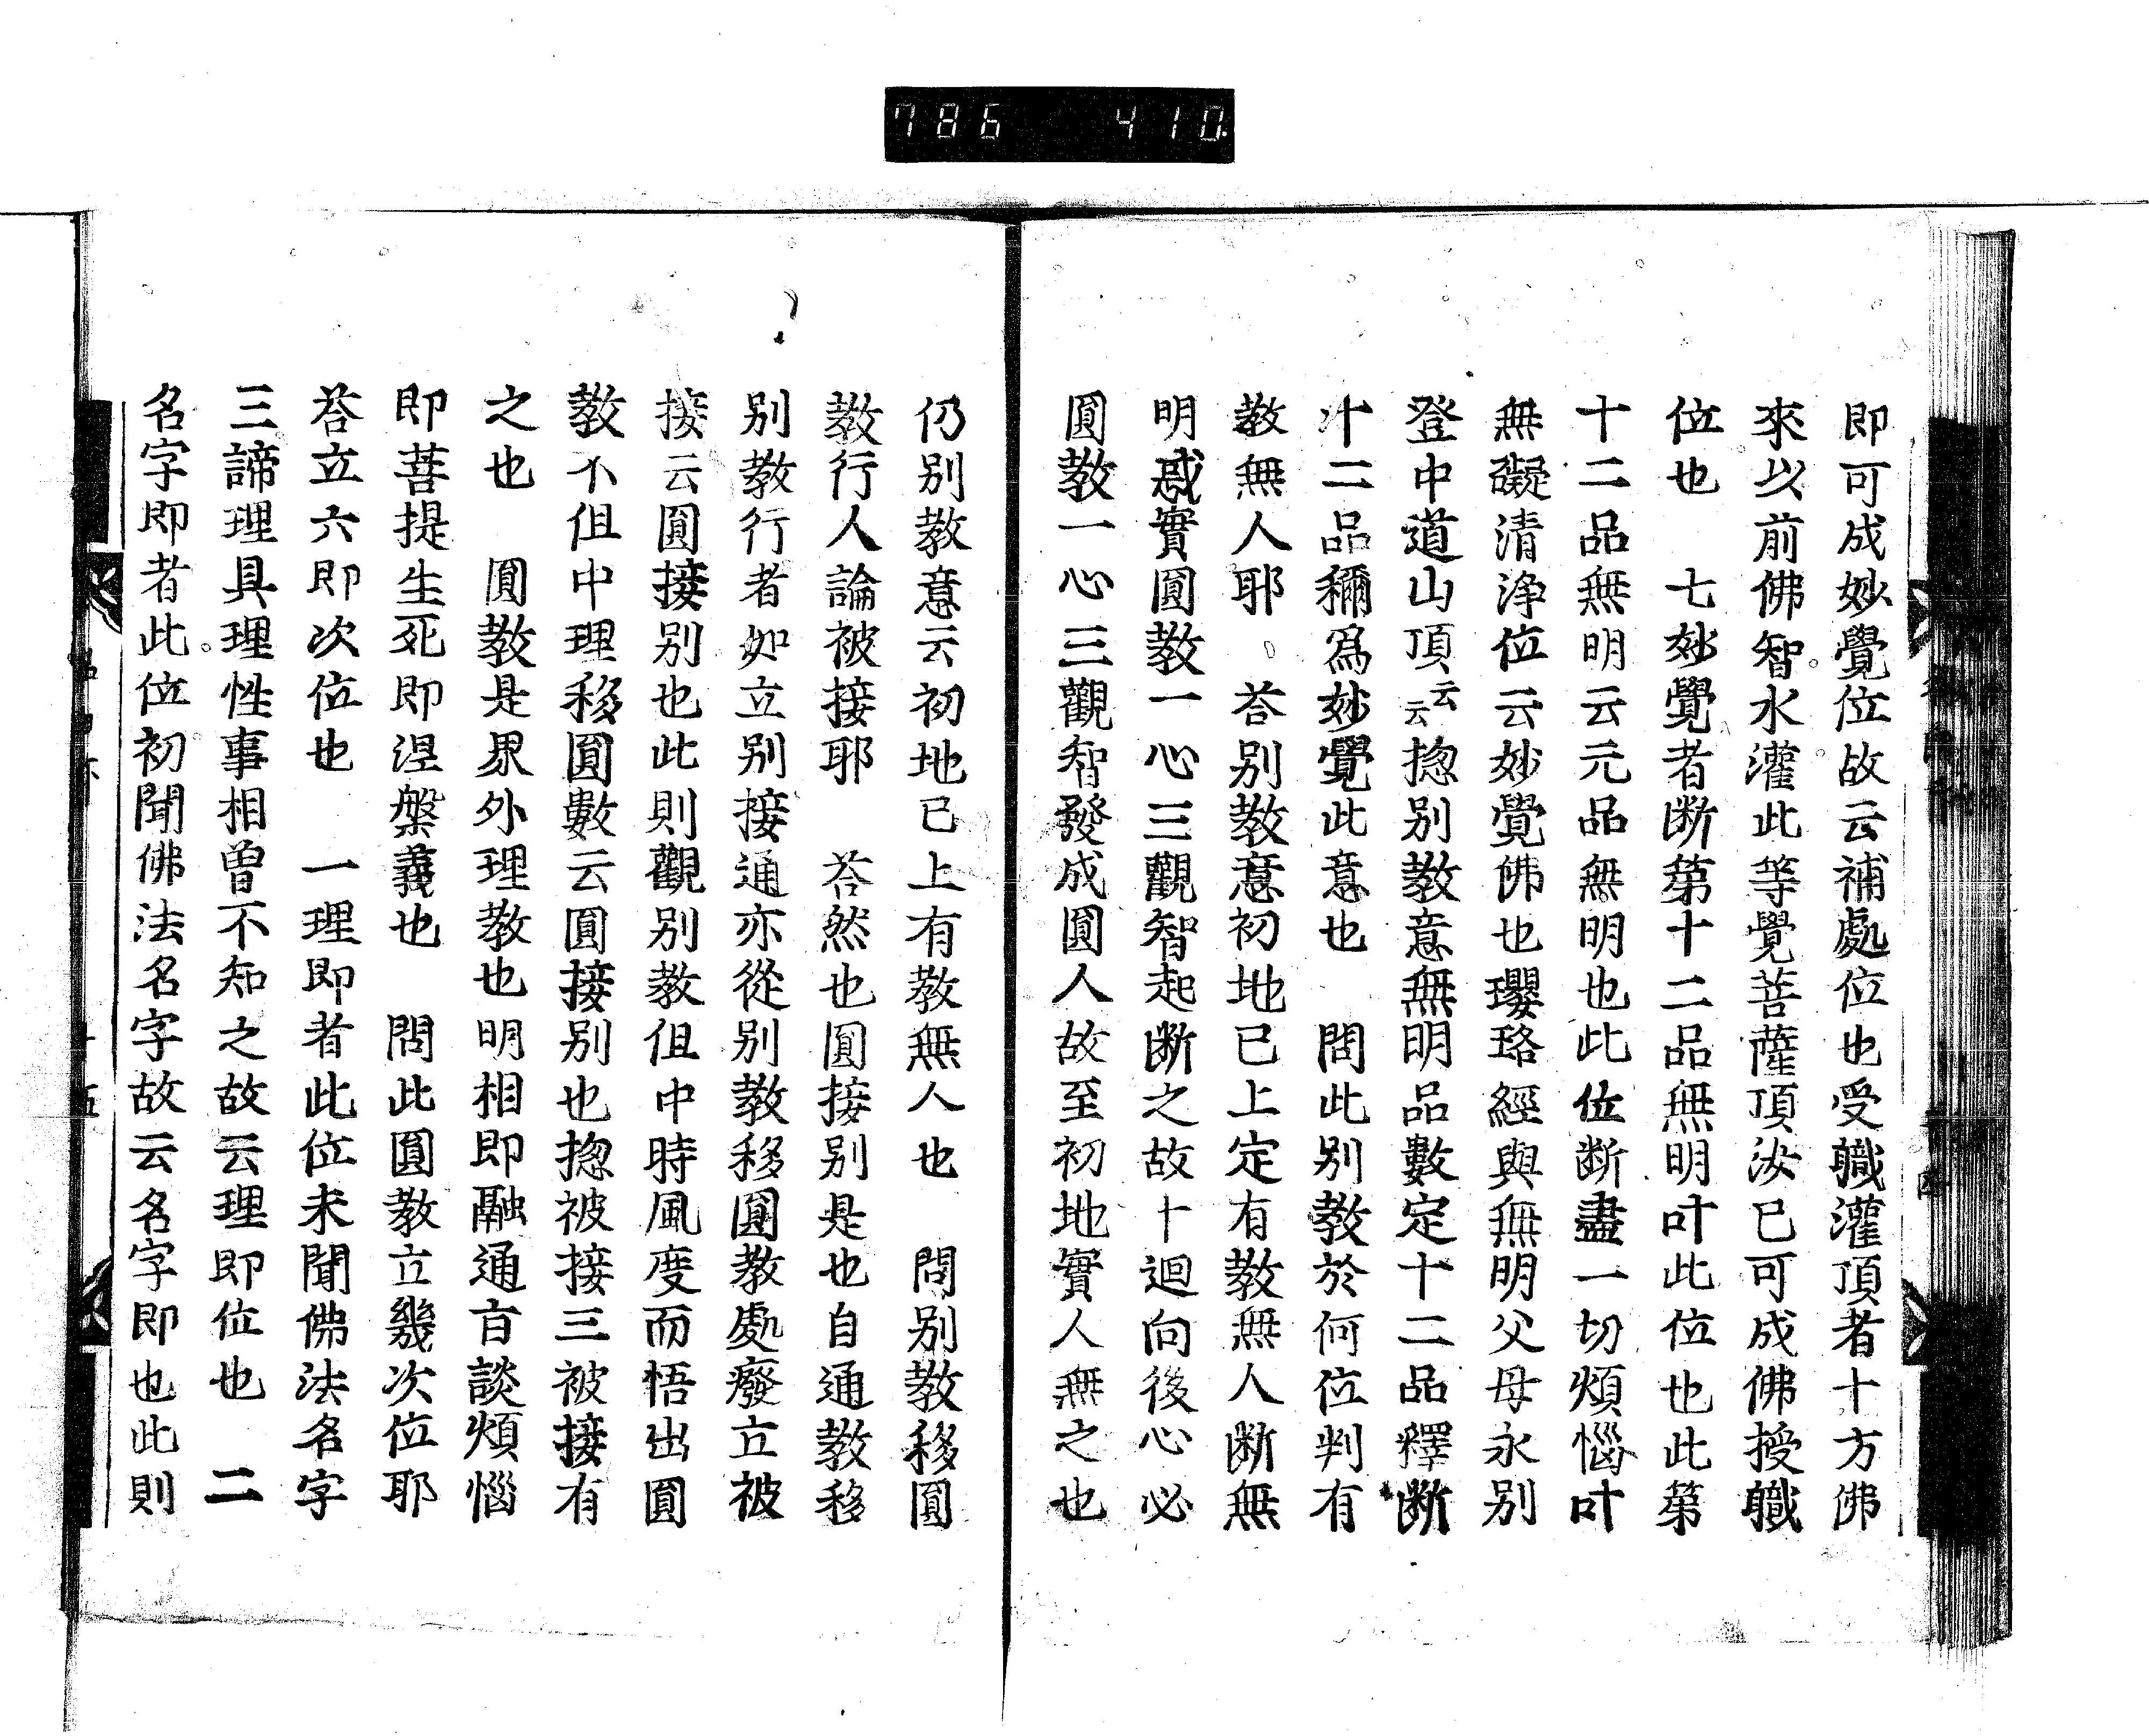 786 410
即可成妙覺位故云補處位也受職灌頂者十方佛
來以前佛智水灌此等覺菩薩頂汝已可成佛授職
位也　七妙覺者断第十二品無明叶此位也此第
十二品無明云元品無明也此位断盡一切煩惱叶
無礙清浄位云妙覺佛也瓔珞經與無明父母永别
登中道山頂云云揔别教意無明品數定十二品釋断
十二品稱爲妙覺此意也　問此别教於何位判有
教無人耶　荅别教意初地已上定有教無人断無
明惑實圓教一心三觀智起断之故十迴向後心必
圓教一心三觀智發成圓人故至初地實人無之也
仍别教意云初地已上有教無人也　問别教移圓
教行人論被接耶　荅然也圓接别是也自通教移
别教行者如立别接通亦從别教移圓教處廢立被
接云圓接别也此則觀别教但中時風度而悟出圓
教不但中理移圓數云圓接别也揔被接三被接有
之也　圓教是界外理教也明相即融通旨談煩惱
即菩提生死即涅槃義也　問此圓教立幾次位耶
荅立六即次位也　一理即者此位未聞佛法名字
三諦理具理性事相曽不知之故云理即位也　二
名字即者此位初聞佛法名字故云名字即也此則